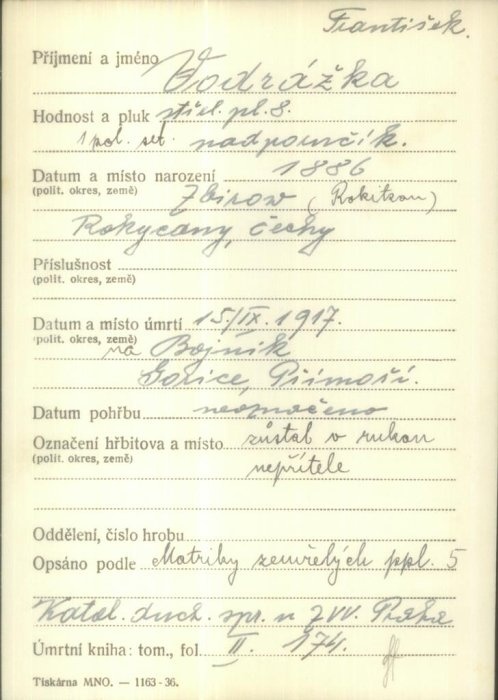 František.
Příjmení a jméno Vodrážka
Hodnost a pluk střel. pl. 8.
1 pol. set. nadporučík.
Datum a místo narození 1886
(polit. okres, země) Zbirow (Rokitzan)
Rokycany, Čechy
Příslušnost
(polit. okres, země)
Datum a místo úmrtí 15/IX. 1917.
(polit. okres, země) na Bojnik
Gorice, Přímoří.
Datum pohřbu neoznačeno
Označení hřbitova a místo zůstal v rukou
(polit. okres, země) nepřítele
Oddělení, číslo hrobu
Opsáno podle Matriky zemřelých ppl. 5
Katol. duch. spr. u ZVV. Praha
Úmrtní kniha: tom., fol. II. 174.
Tiskárna MNO. — 1163-36.